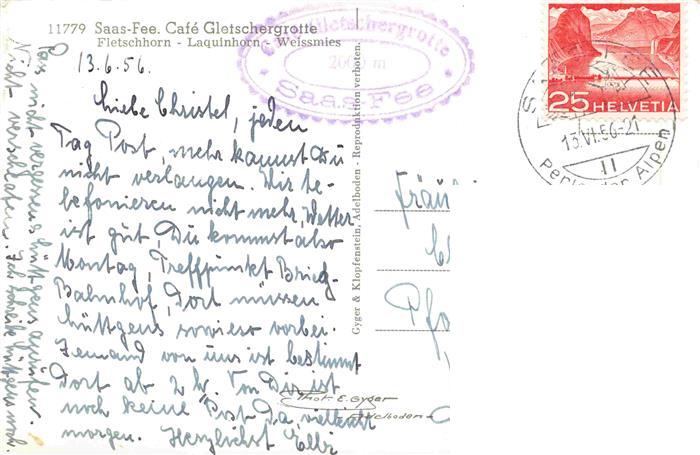 11779 Saas-Fee. Café Gletschergrotte
Fletschhorn - Laquinhorn - Weissmies
13.6.56.
Liebe Christel, jeden
Tag Post, mehr kannst Du
nicht verlangen. Wir te-
lefonieren nicht mehr, Wetter
ist gut, Du kommst also
Montag, Treffpunkt Brieg-
Bahnhof, Dort müssen
Hüttgens sowieso vorbei.
Jemand von uns ist bestimmt
Dort ab 2 h. Von Dir ist
noch keine Post da, vielleicht
morgen. Herzlichst
Pass nicht vergessen, Hüttgens anrufen.
Nicht verschlafen. Ich schreibe Hüttgens noch.
Gletschergrotte
m
Saas-Fee
Gyger & Klopfenstein, Adelboden - Reproduktion verboten.
Phot. E. Gyger
Adelboden
25 HELVETIA
13.VI.56-21
II
Perle der Alpen
Fräu